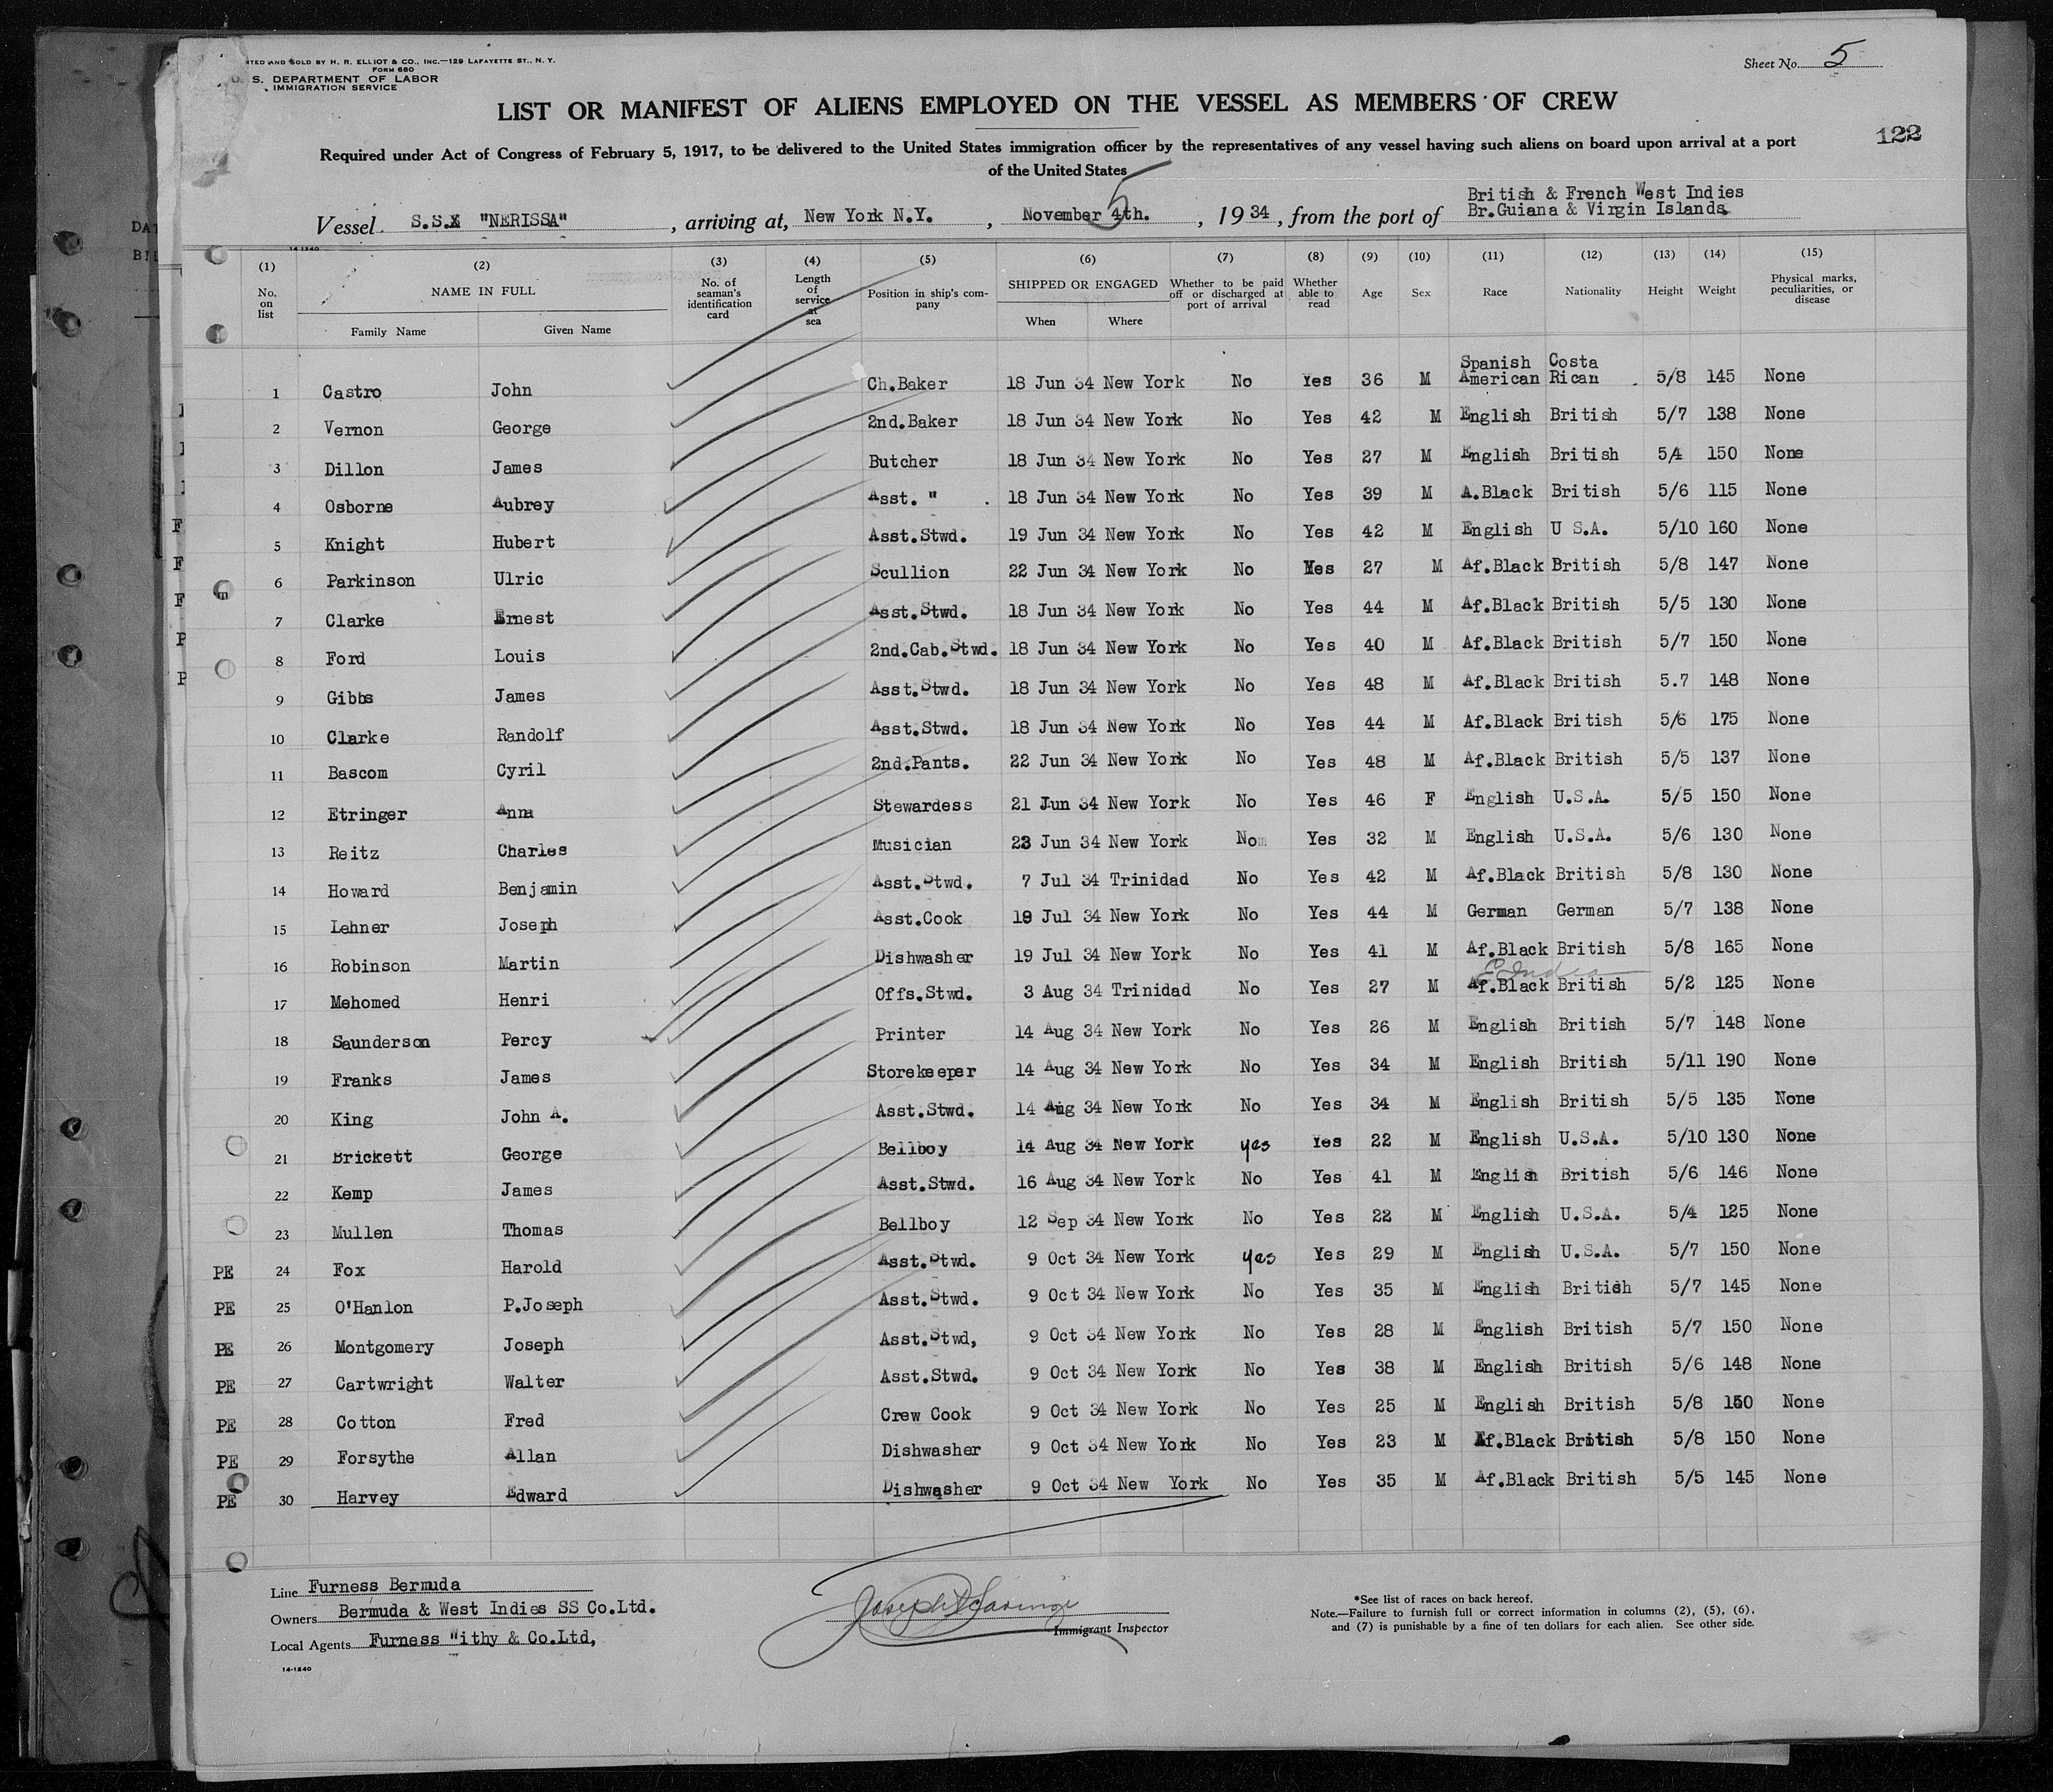 NTED AND SOLD BY H. R. ELLIOT & CO., INC.—129 LAFAYETTE ST., N. Y.
FORM 680
S. DEPARTMENT OF LABOR
IMMIGRATION SERVICE
Sheet No. 5
LIST OR MANIFEST OF ALIENS EMPLOYED ON THE VESSEL AS MEMBERS OF CREW
122
Required under Act of Congress of February 5, 1917, to be delivered to the United States immigration officer by the representatives of any vessel having such aliens on board upon arrival at a port
of the United States
Vessel S.S. "NERISSA", arriving at, New York N.Y., November 4th. 5, 1934, from the port of British & French West Indies
Br.Guiana & Virgin Islands.
14 1240
(1) (2) (3) (4) (5) (6) (7) (8) (9) (10) (11) (12) (13) (14) (15)
No. on list NAME IN FULL Family Name Given Name No. of seaman's identification card Length of service at sea Position in ship's company SHIPPED OR ENGAGED When Where Whether to be paid off or discharged at port of arrival Whether able to read Age Sex Race Nationality Height Weight Physical marks, peculiarities, or disease
1 Castro John Ch.Baker 18 Jun 34 New York No Yes 36 M Spanish American Costa Rican 5/8 145 None
2 Vernon George 2nd.Baker 18 Jun 34 New York No Yes 42 M English British 5/7 138 None
3 Dillon James Butcher 18 Jun 34 New York No Yes 27 M English British 5/4 150 None
4 Osborne Aubrey Asst. " 18 Jun 34 New York No Yes 39 M A.Black British 5/6 115 None
5 Knight Hubert Asst.Stwd. 19 Jun 34 New York No Yes 42 M English U S.A. 5/10 160 None
6 Parkinson Ulric Scullion 22 Jun 34 New York No Yes 27 M Af.Black British 5/8 147 None
7 Clarke Ernest Asst.Stwd. 18 Jun 34 New York No Yes 44 M Af.Black British 5/5 130 None
8 Ford Louis 2nd.Cab.Stwd. 18 Jun 34 New York No Yes 40 M Af.Black British 5/7 150 None
9 Gibbs James Asst.Stwd. 18 Jun 34 New York No Yes 48 M Af.Black British 5.7 148 None
10 Clarke Randolf Asst.Stwd. 18 Jun 34 New York No Yes 44 M Af.Black British 5/6 175 None
11 Bascom Cyril 2nd.Pants. 22 Jun 34 New York No Yes 48 M Af.Black British 5/5 137 None
12 Etringer Anna Stewardess 21 Jun 34 New York No Yes 46 F English U.S.A. 5/5 150 None
13 Reitz Charles Musician 23 Jun 34 New York No Yes 32 M English U.S.A. 5/6 130 None
14 Howard Benjamin Asst.Stwd. 7 Jul 34 Trinidad No Yes 42 M Af.Black British 5/8 130 None
15 Lehner Joseph Asst.Cook 19 Jul 34 New York No Yes 44 M German German 5/7 138 None
16 Robinson Martin Dishwasher 19 Jul 34 New York No Yes 41 M Af.Black British 5/8 165 None
E India
17 Mehomed Henri Offs.Stwd. 3 Aug 34 Trinidad No Yes 27 M Af.Black British 5/2 125 None
18 Saunderson Percy Printer 14 Aug 34 New York No Yes 26 M English British 5/7 148 None
19 Franks James Storekeeper 14 Aug 34 New York No Yes 34 M English British 5/11 190 None
20 King John A. Asst.Stwd. 14 Aug 34 New York No Yes 34 M English British 5/5 135 None
21 Brickett George Bellboy 14 Aug 34 New York yes Yes 22 M English U.S.A. 5/10 130 None
22 Kemp James Asst.Stwd. 16 Aug 34 New York No Yes 41 M English British 5/6 146 None
23 Mullen Thomas Bellboy 12 Sep 34 New York No Yes 22 M English U.S.A. 5/4 125 None
PE 24 Fox Harold Asst.Stwd. 9 Oct 34 New York yes Yes 29 M English U.S.A. 5/7 150 None
PE 25 O'Hanlon P.Joseph Asst.Stwd. 9 Oct 34 New York No Yes 35 M English British 5/7 145 None
PE 26 Montgomery Joseph Asst.Stwd, 9 Oct 34 New York No Yes 28 M English British 5/7 150 None
PE 27 Cartwright Walter Asst.Stwd. 9 Oct 34 New York No Yes 38 M English British 5/6 148 None
PE 28 Cotton Fred Crew Cook 9 Oct 34 New York No Yes 25 M English British 5/8 150 None
PE 29 Forsythe Allan Dishwasher 9 Oct 34 New York No Yes 23 M Af.Black British 5/8 150 None
PE 30 Harvey Edward Dishwasher 9 Oct 34 New York No Yes 35 M Af.Black British 5/5 145 None
Line Furness Bermuda
Owners Bermuda & West Indies SS Co.Ltd.
Local Agents Furness "ithy & Co.Ltd,
14-1240
Immigrant Inspector
*See list of races on back hereof.
Note.—Failure to furnish full or correct information in columns (2), (5), (6),
and (7) is punishable by a fine of ten dollars for each alien. See other side.